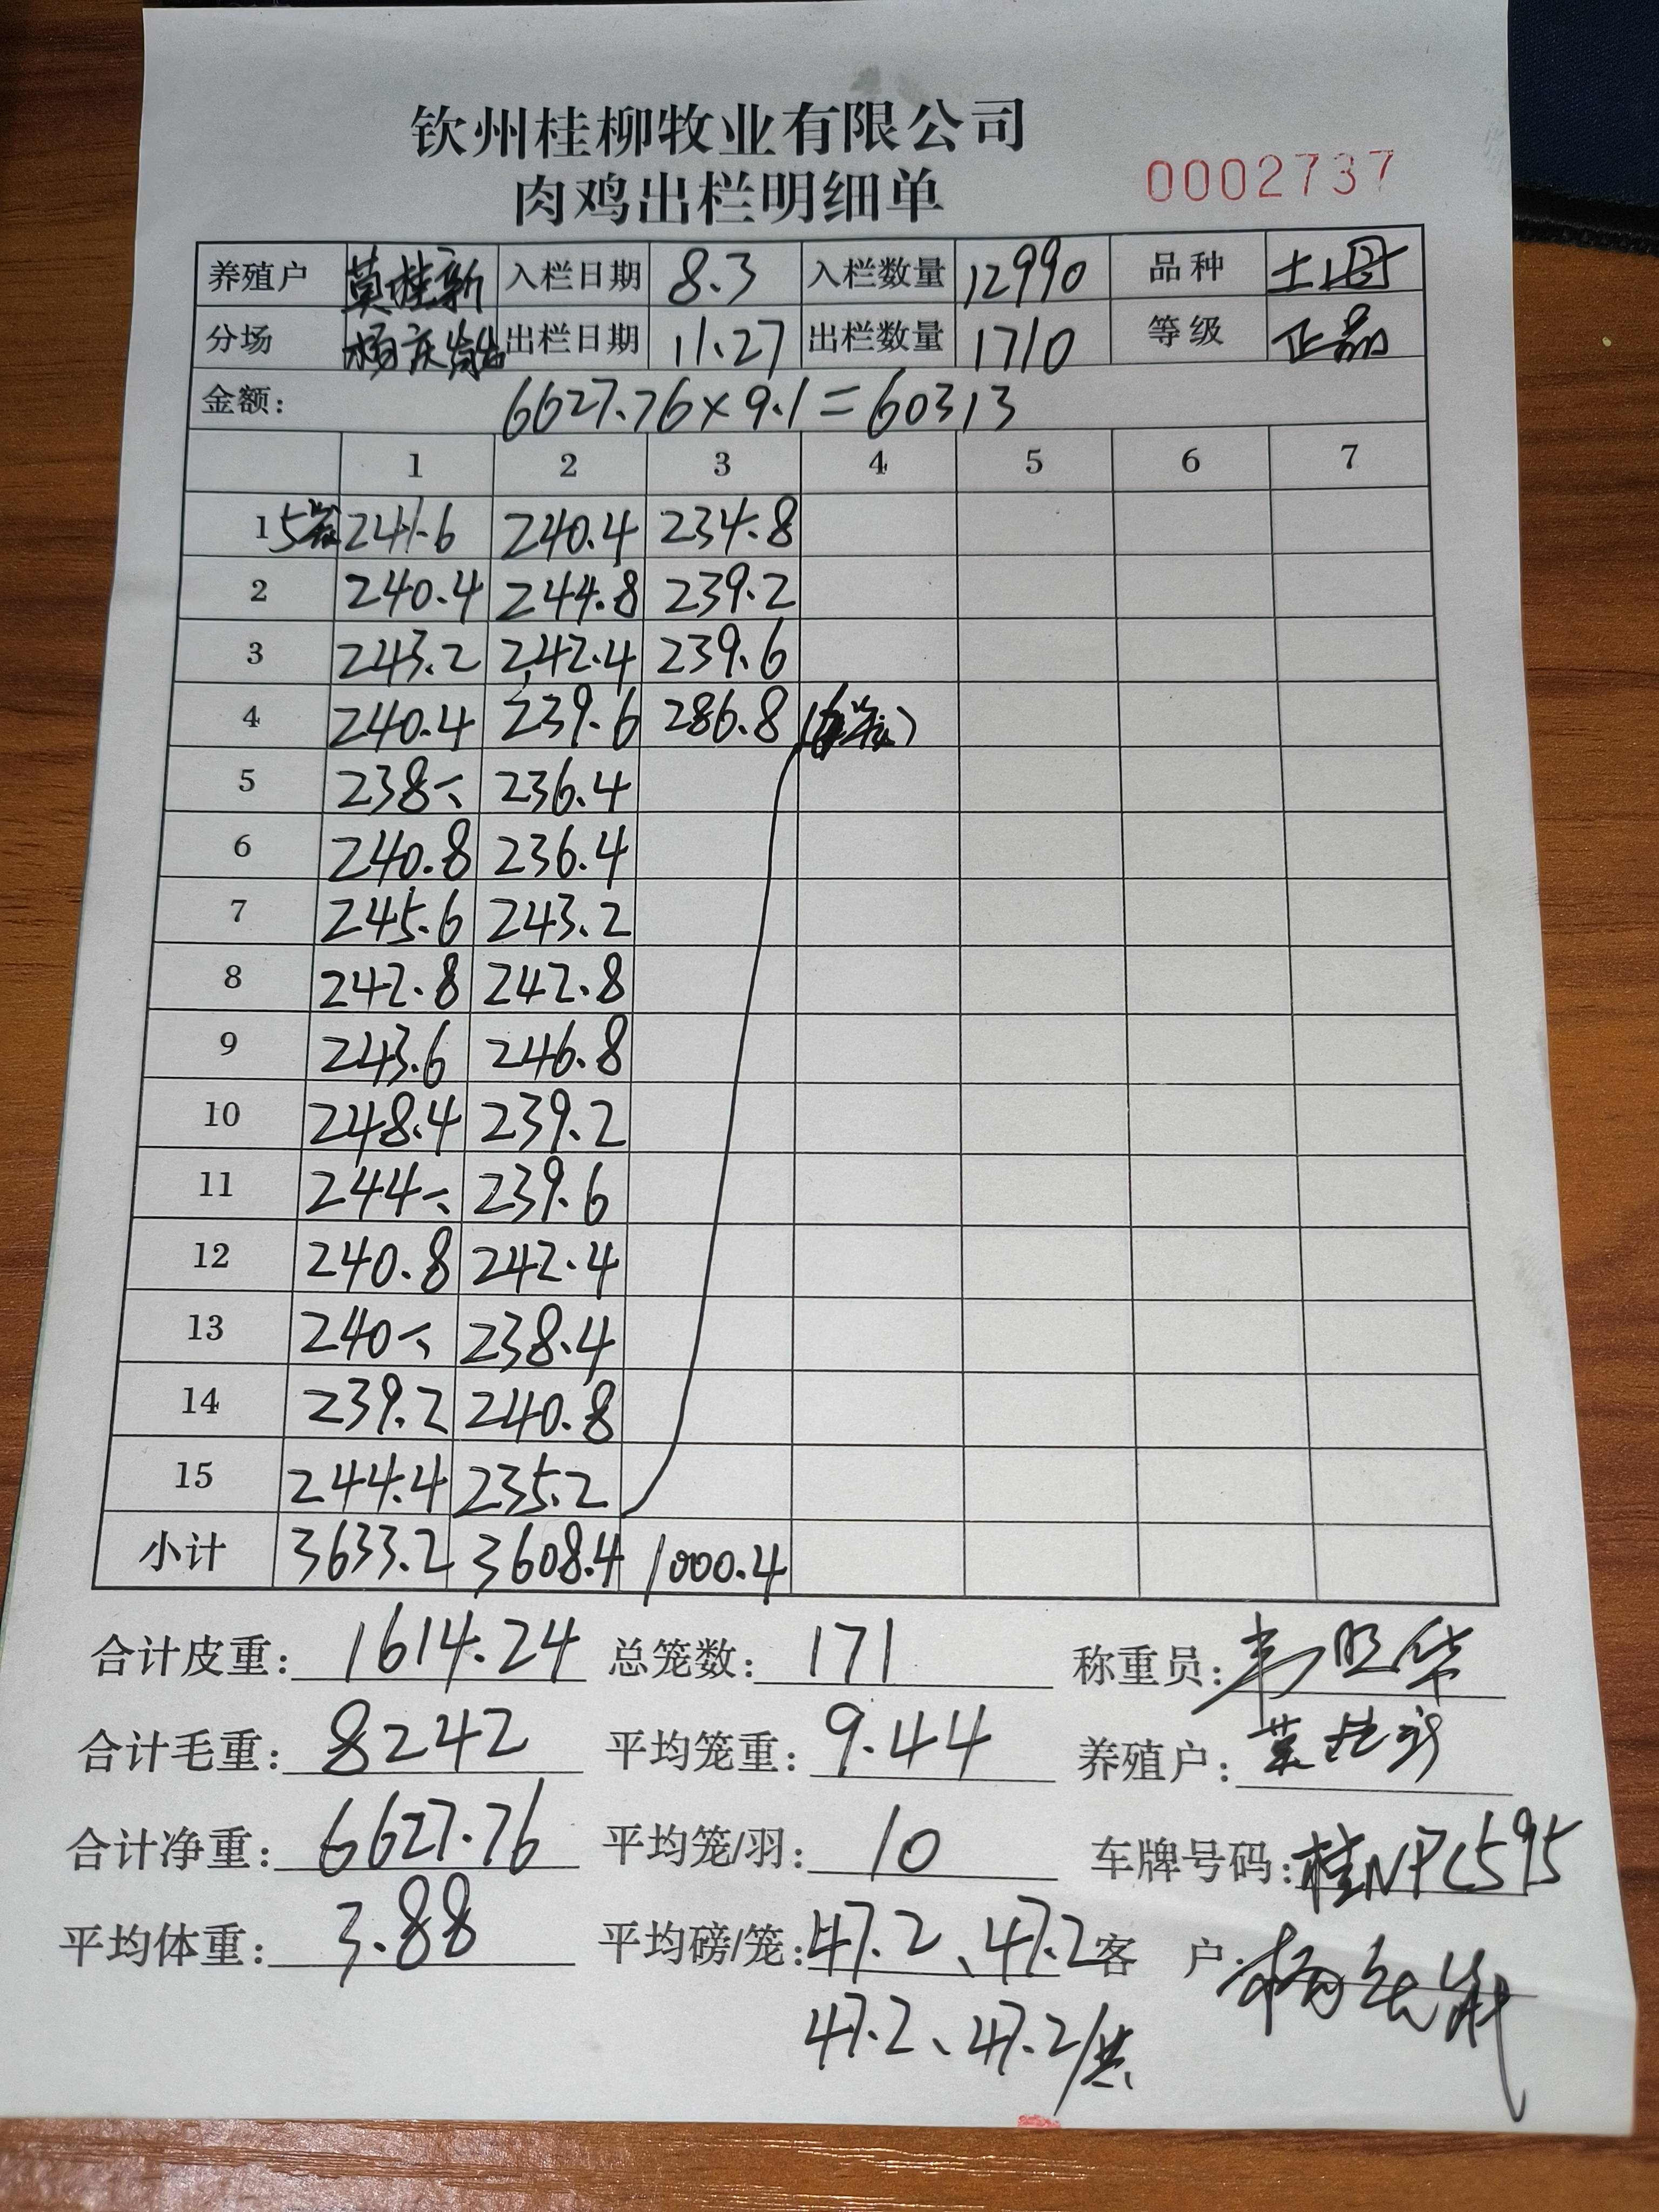 钦州桂柳牧业有限公司
肉鸡出栏明细单
0002737
养殖户 莫桂新 入栏日期 8.3 入栏数量 12990 品种 土
分场 杨 出栏日期 11.27 出栏数量 1710 等级 正品
金额: 6627.76×9.1=60313
1 2 3 4 5 6 7
1 5笼 241.6 240.4 234.8
2 240.4 244.8 239.2
3 243.2 242.4 239.6
4 240.4 239.6 286.8 (6笼)
5 238 236.4
6 240.8 236.4
7 245.6 243.2
8 242.8 242.8
9 243.6 246.8
10 248.4 239.2
11 244 239.6
12 240.8 242.4
13 240 238.4
14 239.2 240.8
15 244.4 235.2
小计 3633.2 3608.4 1000.4
合计皮重: 1614.24 总笼数: 171 称重员: 韦
合计毛重: 8242 平均笼重: 9.44 养殖户: 莫桂新
合计净重: 6627.76 平均笼/羽: 10 车牌号码: 桂NPC595
平均体重: 3.88 平均磅/笼: 47.2、47.2 客户: 杨
47.2、47.2/